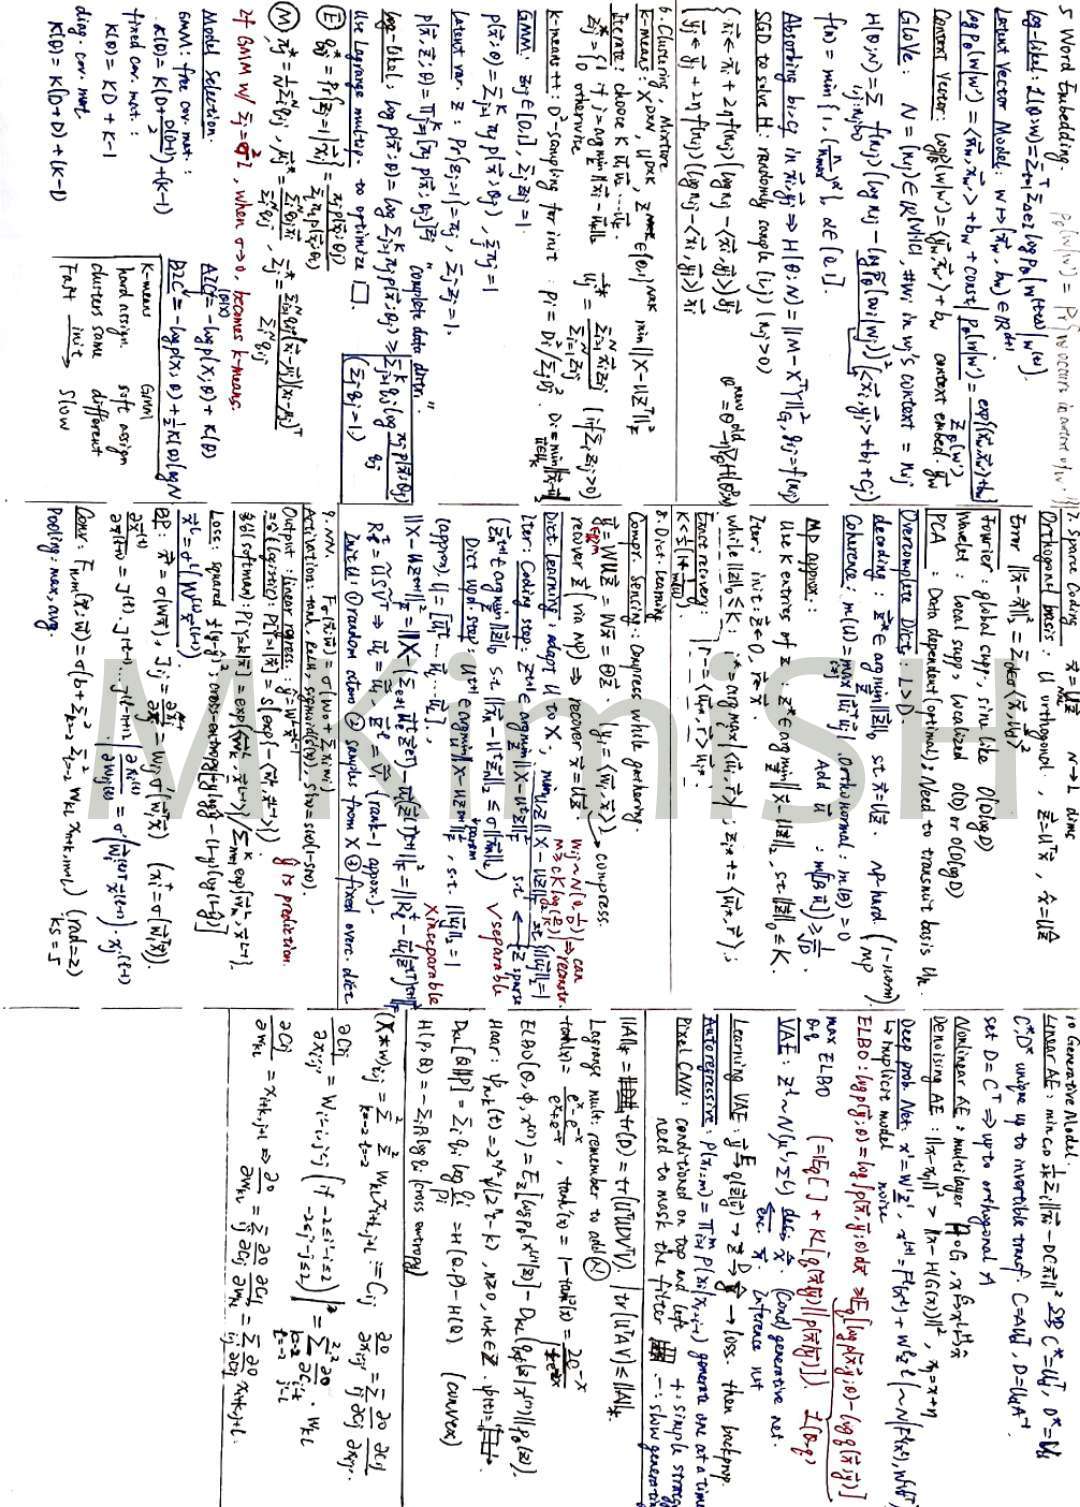 5 Word Embedding. p_θ(w|w') = Pr{w occurs in context of w'}
log-likel: L(θ;w) = Σ_{t=1}^T Σ_{Δ∈I} log p_θ(w^(t+Δ)|w^(t)).
Latent Vector Model: w ↦ (x⃗_w, b_w) ∈ R^{d+1}.
log p_θ(w|w') = <x⃗_w, x⃗_w'> + b_w + const | p_θ(w|w') = exp{<x⃗_w, x⃗_w'> + b_w} / Z_θ(w')
Context Vector: log p_θ(w|w') = <y⃗_w, x⃗_w'> + b_w context embed. y⃗_w
GloVe: N = (n_ij) ∈ R^{|V|·|C|}, #w_i in w_j's context = n_ij
H(θ;N) = Σ_{i,j: n_ij>0} f(n_ij)(log n_ij - log p̃_θ(w_i|w_j))² (<x⃗_i, y⃗_j> + b_i + c_j)
f(n) = min{1, (n/n_max)^α}, α∈(0,1].
Absorbing b_i, c_j in x⃗_i, y⃗_j ⇒ H(θ;N) = ||M - X^T Y||²_G, g_ij = f(n_ij)
SGD to solve H: randomly sample (i,j) (n_ij>0)
x⃗_i ← x⃗_i + 2η f(n_ij)(log n_ij - <x⃗_i, y⃗_j>) y⃗_j θ^new = θ^old - η∇_θ H(θ;N)
y⃗_j ← y⃗_j + 2η f(n_ij)(log n_ij - <x⃗_i, y⃗_j>) x⃗_i
6. Clustering, Mixture
k-means: X^{D×N}, U^{D×K}, Z ∈ {0,1}^{N×K} min ||X - UZ^T||²_F
Iterate: choose K u⃗_1 u⃗_2 ... u⃗_k.
z*_ij = {1 if j = argmin ||x⃗_i - u⃗_k||_2 u⃗_j* = Σ_{i=1}^N x⃗_i z_ij / Σ_{i=1}^N z_ij (if Σ_i z_ij > 0)
0 otherwise
k-means++: D²-sampling for init p_i = D_i²/Σ_j D_j². D_i = min_{u⃗∈U_k} ||x⃗_i - u⃗||_2
GMM: z_ij ∈ [0,1], Σ_j z_ij = 1.
p(x⃗;θ) = Σ_{j=1}^K π_j p(x⃗;θ_j), Σ_j π_j = 1
Latent var. z: Pr{z_j=1} = π_j, Σ_j z_j = 1.
p(x⃗,z⃗;θ) = Π_{j=1}^K [π_j p(x⃗;θ_j)]^{z_j} "complete data distri".
log-likel: log p(x⃗;θ) = log Σ_{j=1}^K π_j p(x⃗;θ_j) ≥ Σ_{j=1}^K q_j log π_j p(x⃗;θ_j)/q_j
Use Lagrange multip. to optimize □. (Σ_j q_j = 1.)
(E) q*_ij = Pr{z_j=1|x⃗_i} = π_j p(x⃗_i;θ_j) / Σ_l π_l p(x⃗_i;θ_l)
(M) π_j* = 1/N Σ_i^N q_ij, μ⃗_j* = Σ_i^N q_ij x⃗_i / Σ_i^N q_ij, Σ_j* = Σ_i^N q_ij(x⃗_i - μ⃗_j)(x⃗_i - μ⃗_j)^T / Σ_i^N q_ij
If GMM w/ Σ_j = σ²I, when σ→0, becomes k-means.
Model Selection.
GMM: free cov. mat.:
K(θ) = K(D + D(D+1)/2) + (K-1)
fixed cov. mat.:
K(θ) = KD + K-1
diag. cov. mat
K(θ) = K(D+D) + (K-1)
AIC = -log p(X;θ) + K(θ)
BIC = -log p(X;θ) + ½ K(θ) log N
K-means GMM
hard assign. soft assign
clusters same different
Fast init→ slow
7. Sparse Coding x⃗ = Uz⃗ N→L dims
Orthogonal basis: U orthogonal., z⃗ = U^T x⃗, x̂ = Uẑ
Error ||x⃗ - x̂||²_2 = Σ_{d∉σ} <x⃗, u⃗_d>²
Fourier: global supp., sine like O(D log D)
Wavelet: local supp, localized O(D) or O(D log D)
PCA: Data dependent (optimal); Need to transmit basis U_k.
Overcomplete Dict: L>D.
decoding: z⃗* ∈ argmin_z ||z⃗||_0 s.t. x⃗ = Uz⃗. NP-hard. (1-norm) (MP)
Coherence: m(U) = max_{i≠j} |u⃗_i^T u⃗_j|. Orthonormal: m(B) = 0
Add u⃗: m([B u⃗]) ≥ 1/√D.
MP approx.:
Use K entries of z: z* ∈ argmin_z ||x⃗ - Uz⃗||_2, s.t. ||z⃗||_0 ≤ K.
Iter: init: z⃗ ← 0, r⃗ ← x⃗.
while ||z||_0 ≤ K: i* = argmax_i |<u⃗_i, r⃗>|; z_i* += <u⃗_i*, r⃗>;
Exact recovery: r -= <u⃗_i*, r⃗> u⃗_i*.
K < ½(1 + 1/m(U)).
8. Dict. learning
Compr. Sensing.: Compress while gathering.
y⃗ = WUz⃗ = Wx⃗ = Θz⃗. (y_i = <w⃗_i, x⃗>) → compress.
recover z⃗ (via MP) ⇒ recover x⃗ = Uz⃗. w_ij ~ N(0, 1/D) m ≥ cK log(D/K) ⇒ can reconstr.
Dict. learning: adapt U to X, min_{U,Z} ||X - UZ||²_F st {||u⃗_j||_2 = 1
Iter: Coding step: Z^{t+1} ∈ argmin_Z ||X - U^t Z||²_F s.t. ← Z sparse
(z⃗_n^{t+1} ∈ argmin_z ||z⃗||_0 s.t. ||x⃗_n - U^t z⃗_n||_2 ≤ σ||x⃗_n||_2) ✓separable
Dict upd. step: U^{t+1} ∈ argmin_U ||X - UZ^{t+1}||²_F, s.t. ||u⃗_j||_2 = 1
(approx). U = [u⃗_1^t ... u⃗_l ... u⃗_L^t]., ×inseparable
||X - UZ^{t+1}||²_F = ||X - (Σ_{e≠l} u⃗_e^t (z⃗_e^T)^{t+1}) - u⃗_l (z⃗_l^T)^{t+1}||²_F = ||R_l^t - u⃗_l (z⃗_l^T)^{t+1}||²_F
R_l^t = ŨSṼ^T ⇒ u⃗_l = ũ_1. z⃗^l = ṽ_1 (rank-1 appox.).
Init U: ① random atom ② samples from X ③ fixed overc. dict
9. NN. F_σ(x⃗;w⃗) = σ(w_0 + Σ x_i w_i)
Activation: tanh, ReLU, sigmoid(s(x)), s'(x) = s(x)(1-s(x)).
Output: linear regress. ŷ = W^L x⃗^{L-1} ŷ is prediction.
二分(logistic): P[Y=1|x⃗] = s(exp{-<w⃗^L, x⃗^{L-1}>})
多分(softmax): P[Y=k|x⃗] = exp{<w⃗_k^L, x⃗^{L-1}>} / Σ_{m=1}^K exp{<w⃗_m^L, x⃗^{L-1}>}.
Loss: squared ½(y-ŷ)²; cross-entropy[-y log ŷ - (1-y) log(1-ŷ)]
x⃗^l = σ^l(W^(l) x⃗^(l-1)).
BP: x⃗⁺ = σ(Wx⃗), J_ij = ∂x_i⁺/∂x_j = w_ij σ'(w⃗_i^T x⃗) (x_i⁺ = σ(w⃗_i^T x⃗)).
∂x⃗^(l)/∂x⃗^(l-n) = J^(l)·J^(l-1)...J^(l-n+1). | ∂x_i^(l)/∂w_ij^(l) = σ'(w⃗_i^(l)T x⃗^(l-1))·x_j^(l-1)
Conv: F_{n,m}(x⃗;w⃗) = σ(b + Σ_{k=-2}^2 Σ_{l=-2}^2 w_kl x_{n+k,m+l}) (rad=2)
Pooling: max, avg. ks = 5
10 Generative Model.
Linear AE: min_{C,D} 1/2k Σ_i ||x⃗_i - DCx⃗_i||² SVD⇒ C* = U_d^T, D* = U_d
C*,D* unique up to invertible transf. C = AU_d^T, D = U_d A^{-1}.
set D = C^T ⇒ up to orthogonal A
Nonlinear AE: multilayer H∘G, x →G x^l →H x̂
Denoising AE: ||x - x_η||² > ||x - H(G(x))||², x_η = x+η
Deep prob. Net: x' = W'z', x^{l+1} = F^l(x^l) + W^l z^l (~N(F^l(x^l), W^l W^lT)
↳ implicit model noise
ELBO: log p(y⃗;θ) = log ∫ p(x⃗,y⃗;θ) dx ≥ E_q[log p(x⃗,y⃗;θ) - log q(x⃗;y⃗)]
max_{θ,q} ELBO (= E_q[ ] + KL[q(x⃗|y⃗)||p(x⃗|y⃗)]). L(θ,q)
VAE: z^l ~ N(μ^l, Σ^l) dec.→ x̂. (Cond) generative net.
← enc. x⃗. Inference net
Learning VAE: y⃗ →E q(z⃗|y⃗) → z⃗ →D ŷ → loss. then backprop.
Autoregressive: P(x_{1:m}) = Π_{i=1}^m P(x_i|x_{1:i-1}) generate one at a time
Pixel CNN: conditioned on top and left +: simple strateg
need to mask the filter -: slow generatin
||A||_* = tr(D) = tr(U^T U D V^T V). | tr(U^T A V) ≤ ||A||_*.
Lagrange mult: remember to add λ!
tanh(x) = (e^x - e^{-x})/(e^x + e^{-x}), tanh'(x) = 1 - tanh²(x) =
ELBO(θ,φ,x^(i)) = E_z[log p_θ(x^(i)|z)] - D_KL(q_φ(z|x^(i))||p_θ(z)).
Haar: ψ_{n,k}(t) = 2^{n/2} ψ(2^n t - k), n≥0, n,k∈Z. ψ(t) =
D_KL[Q||P] = Σ_i q_i log q_i/p_i = H(Q,P) - H(Q) (convex)
H(P,Q) = -Σ_i p_i log q_i (cross entropy)
(X*w)_{i,j} = Σ_{k=-2}^2 Σ_{l=-2}^2 w_kl x_{i+k,j+l} := C_ij ∂o/∂x_{i'j'} = Σ_ij ∂o/∂C_ij ∂C_ij/∂x_{i'j'}.
∂C_ij/∂x_{i'j'} = w_{i'-i,j'-j} (if -2≤i'-i≤2 -2≤j'-j≤2) = Σ_{k=-2}^2 Σ_{l=-2}^2 ∂o/∂C_{i'-k,j'-l} · w_kl
∂C_ij/∂w_kl = x_{i+k,j+l} ⇒ ∂o/∂w_kl = Σ_ij ∂o/∂C_ij ∂C_ij/∂w_kl = Σ_ij ∂o/∂C_ij x_{i+k,j+l}.
MKimiSH